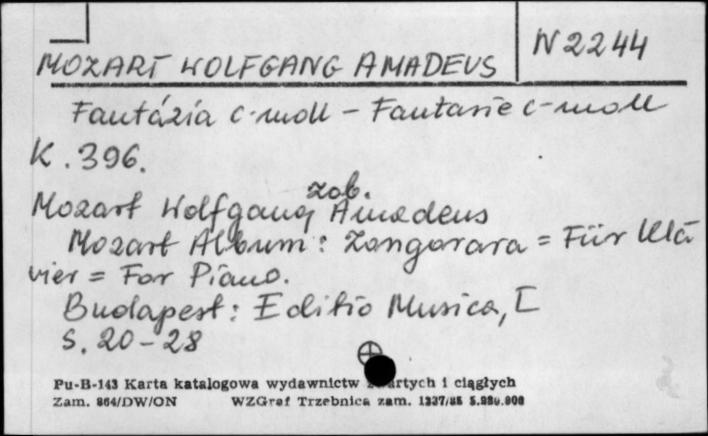 MOZART WOLFGANG AMADEUS N 2244
Fantázia c-moll - Fantasie c-moll
K. 396.
zob.
Mozart Wolfgang Amadeus
Mozart Album: Zongorara = Für Kla
vier = For Piano.
Budapest: Editio Musica, [
S. 20-28
Pu-B-143 Karta katalogowa wydawnictw zwartych i ciągłych
Zam. 864/DW/ON WZGraf Trzebnica zam. 1337/85